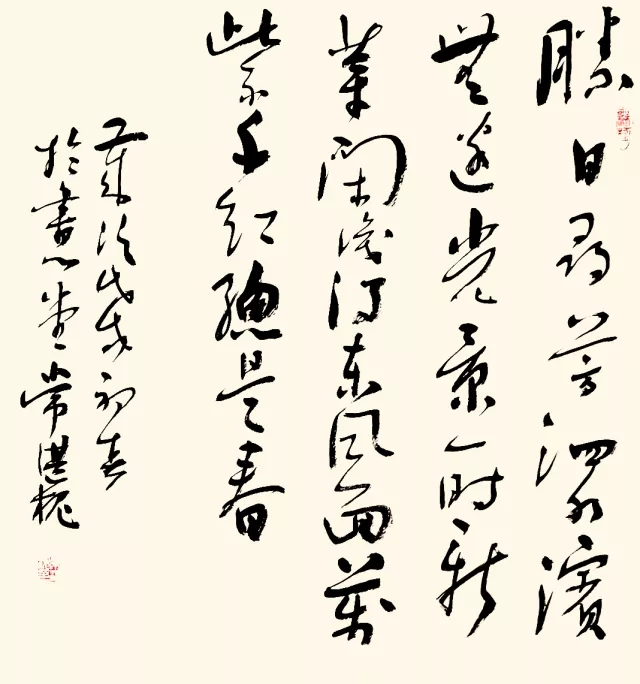 勝日尋芳泗水濱
無邊光景一時新
等閑識得東風面萬
紫千紅總是春
歲次戊戌初春
於書心堂常